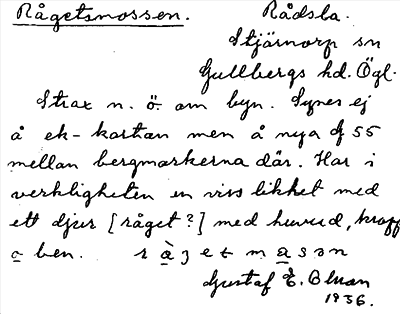 Rågetsmossen. Rådsla.
Stjärnorp sn
Gullbergs hd. Ögl.
Strax n. ö. om byn. Synes ej
å ek-kartan men å nya G 55
mellan bergmarkerna där. Har i
verkligheten en viss likhet med
ett djur [råget?] med huvud, kropp
o ben.
Gustaf E. Oluan
1936.